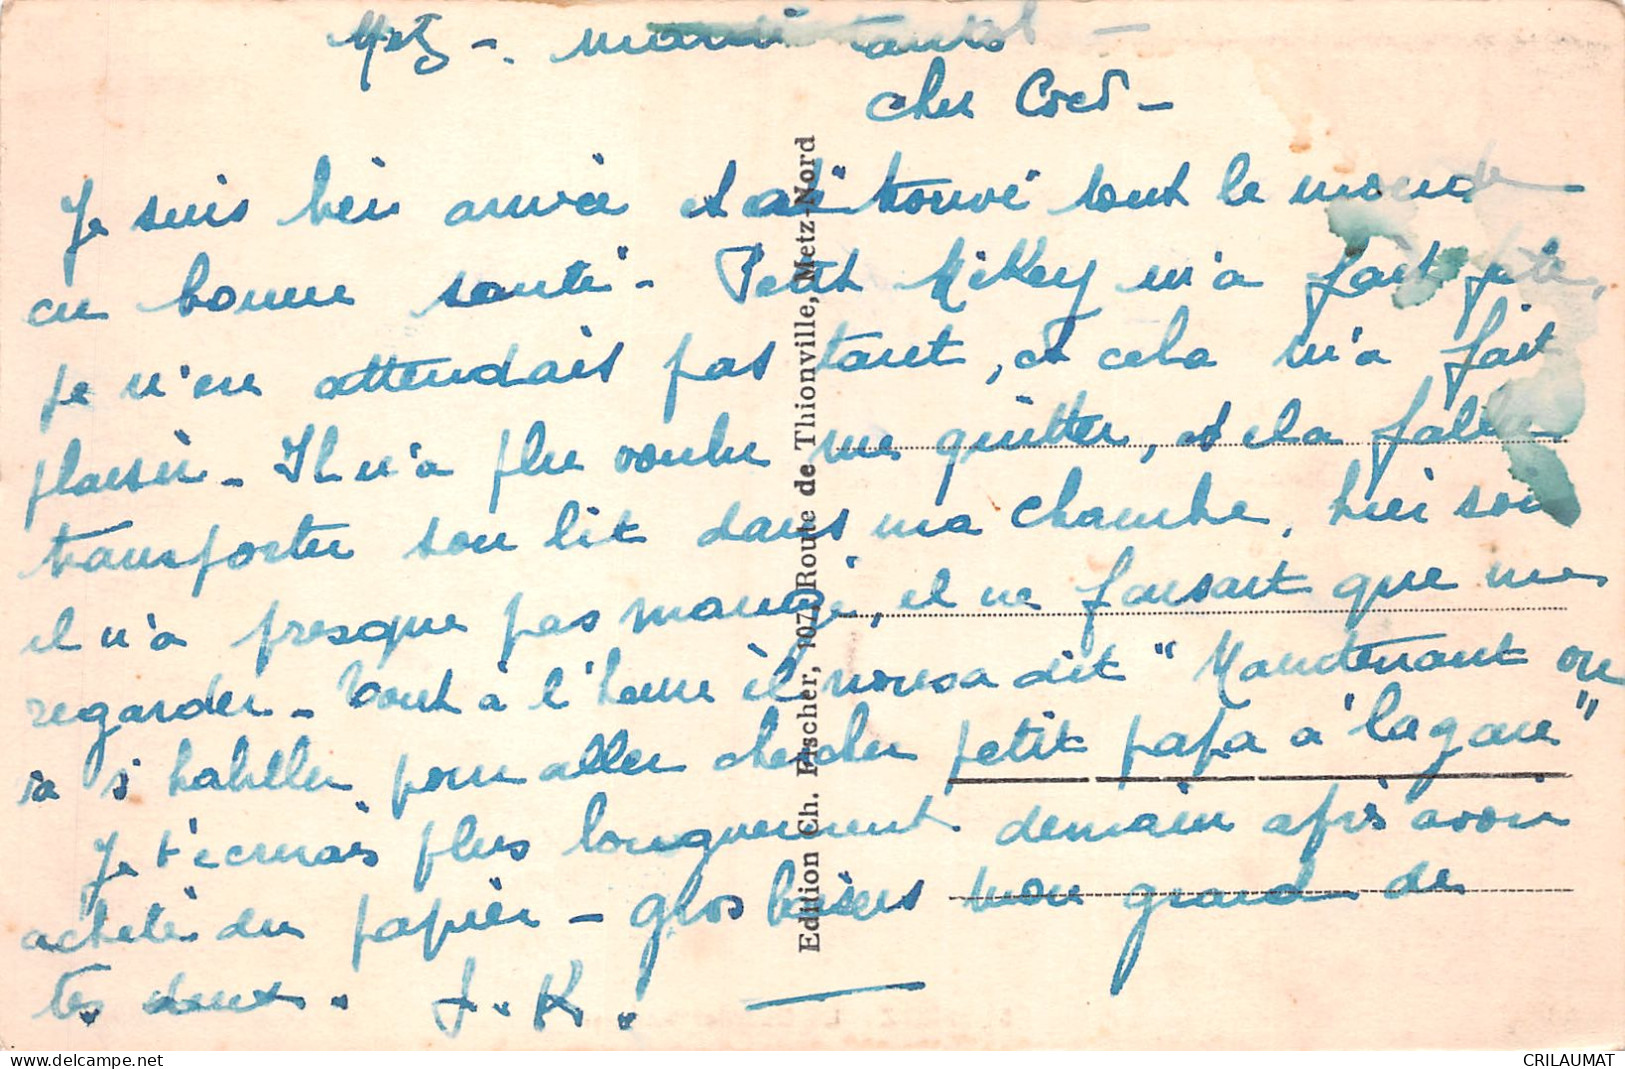 Metz - mardi
cher Coco -
Je suis bien arrivée et ai trouvé tout le monde
en bonne santé - Petit Mikey m'a fait fête,
je n'en attendais pas tant, et cela m'a fait
plaisir - Il n'a plu voulu me quitter, et il a fallu
transporter son lit dans ma chambre, hier soir
il n'a presque pas mangé, il ne faisait que me
regarder - Tout à l'heure il nous a dit "Maintenant on
va s'habiller pour aller chercher petit papa à la gare"
Je t'écrirais plus longuement demain après avoir
acheté du papier - gros baisers mon grand de
tes deux. J. K.
Edition Ch. Fischer, 107, Route de Thionville, Metz-Nord
CRILAUMAT